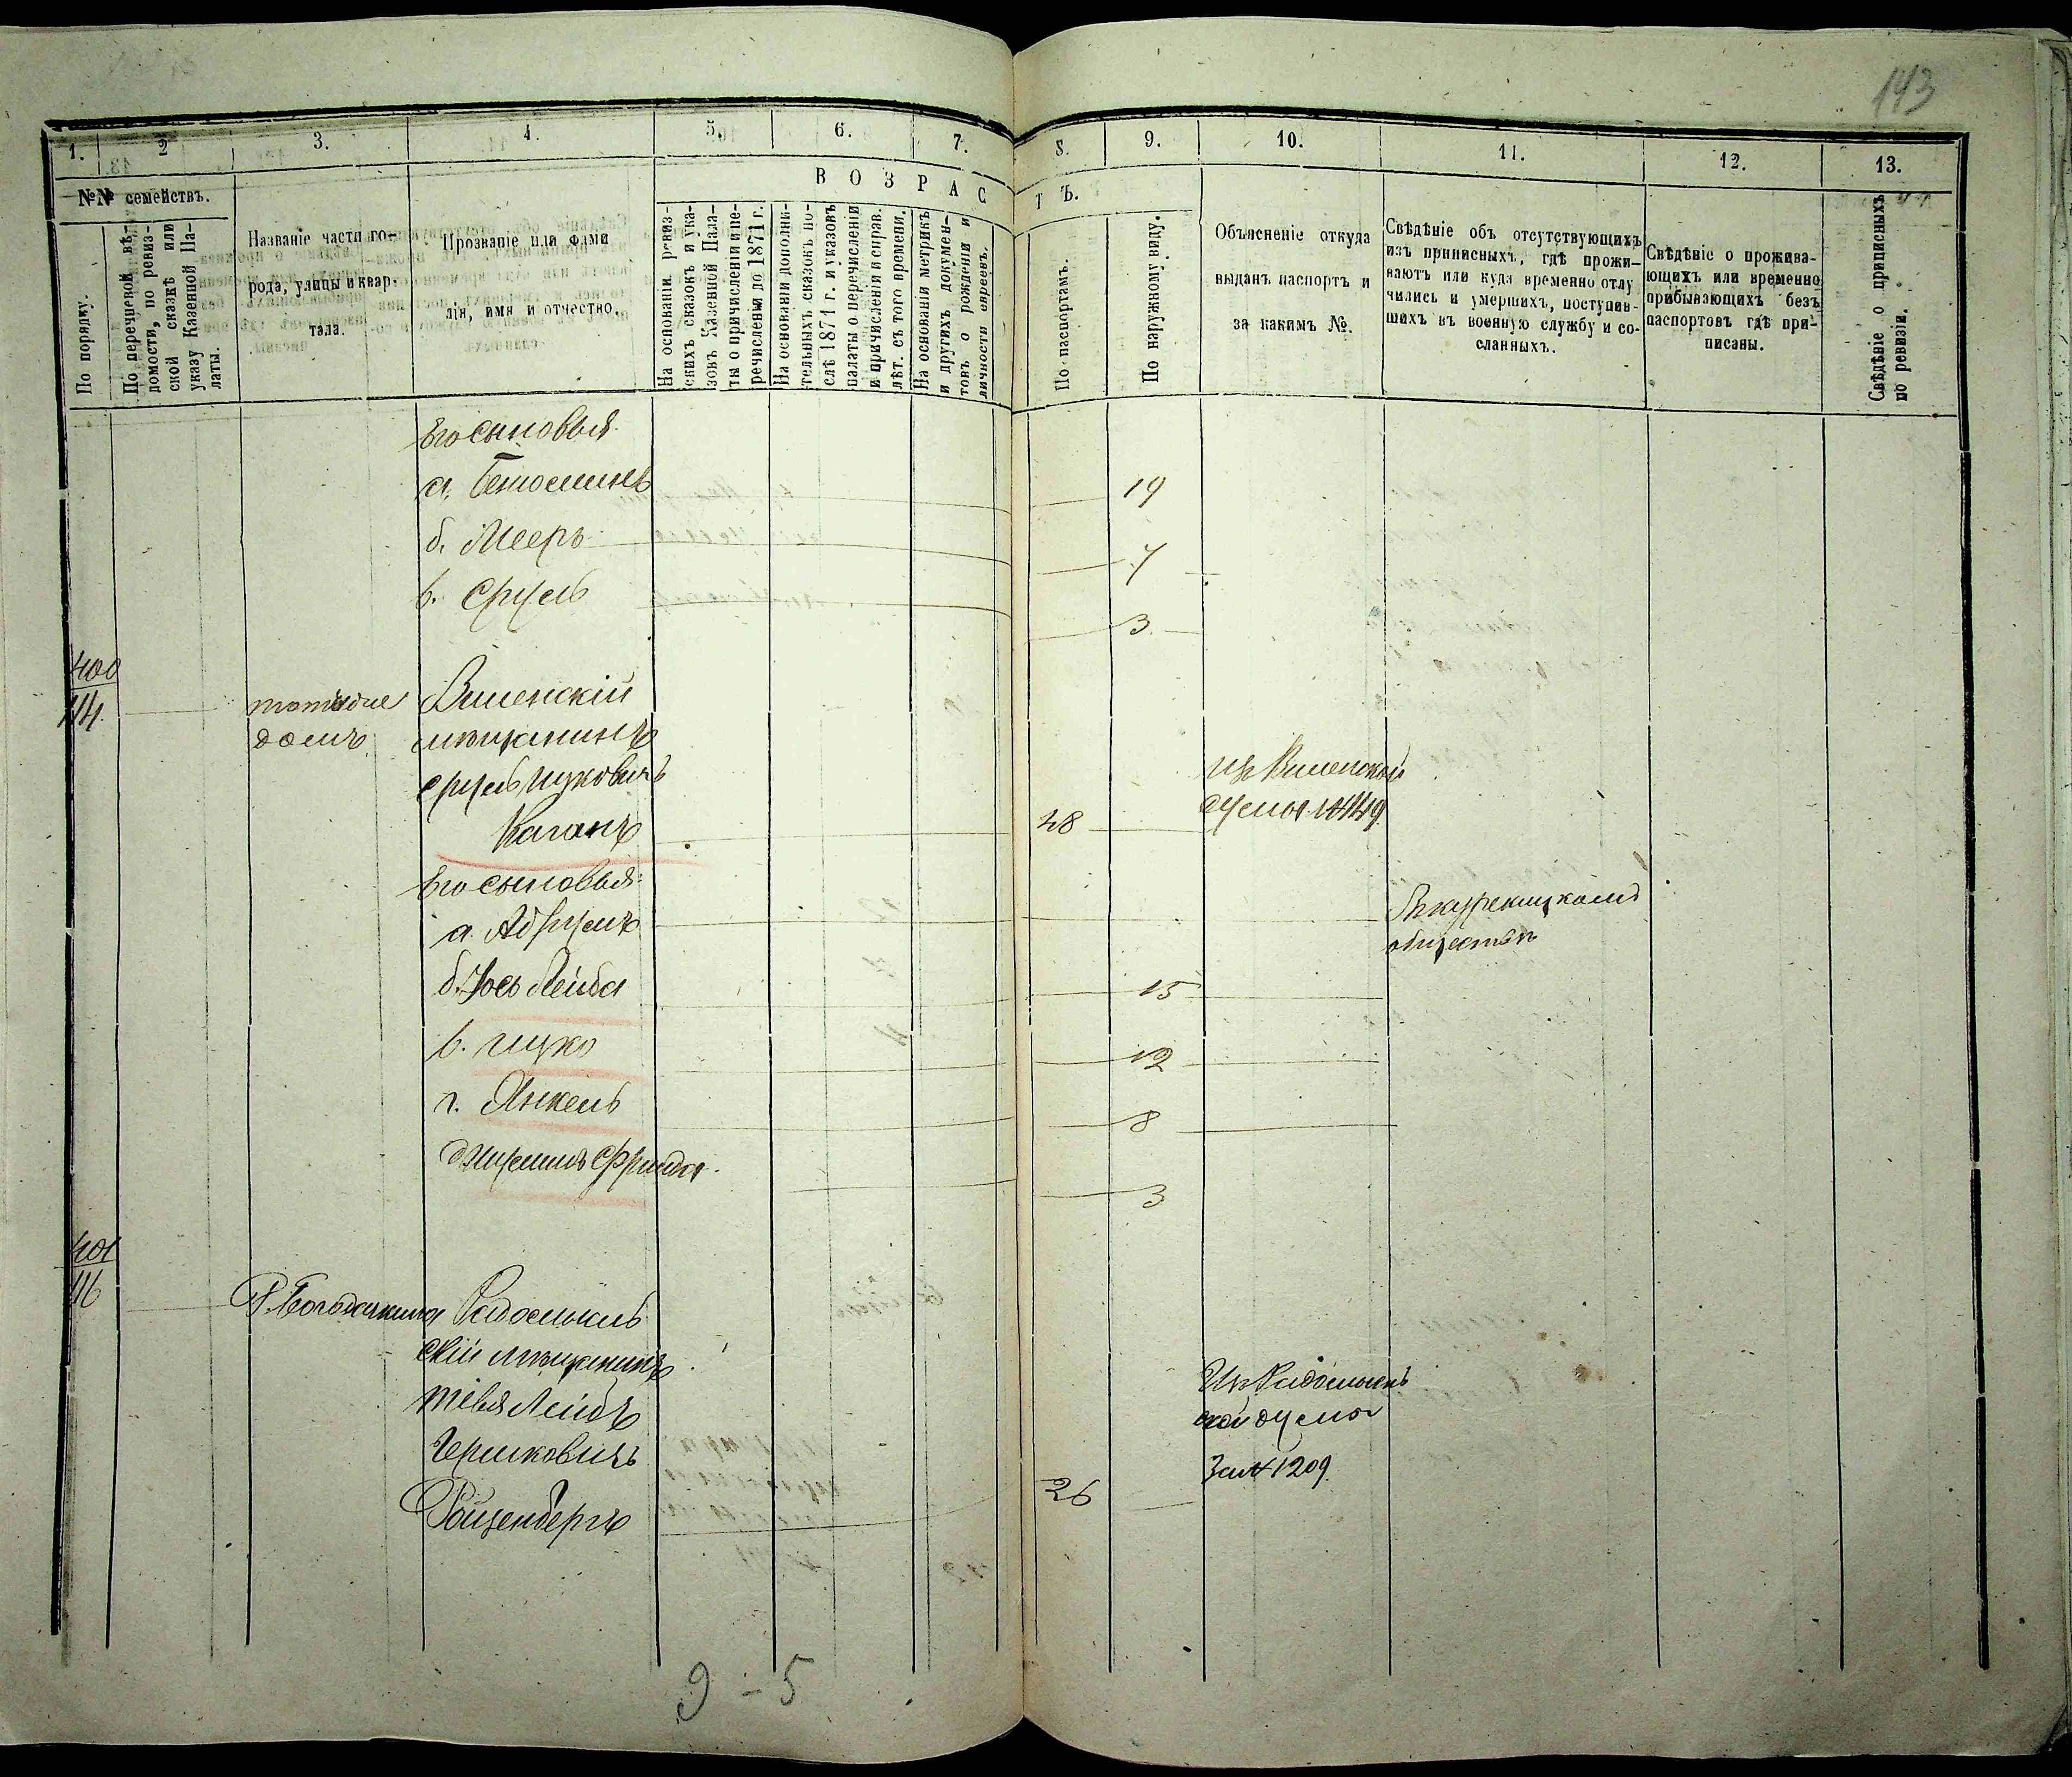 143
1. 2 3. 4. 5. 6. 7. 8. 9. 10. 11. 12. 13.
№№ семействъ.
По порядку.
По перечневой вѣ-
домости, по ревиз-
ской сказкѣ или
указу Казенной Па-
латы.
Названіе части го-
рода, улицы и квар-
тала.
Прозваніе или фами
лія, имя и отчество.
ВОЗРАСТЪ.
На основаніи ревиз-
скихъ сказокъ и ука-
зовъ Казенной Пала-
ты о причисленіи и пе-
речисленіи до 1871 г.
На основаніи дополни-
тельныхъ сказокъ по-
слѣ 1871 г. и указовъ
палаты о перечисленіи
и причисленіи и справ.
лѣт. съ того времени.
На основаніи метрикъ
и другихъ докумен-
товъ о рожденіи и
личности евреевъ.
По паспортамъ.
По наружному виду.
Объясненіе откуда
выданъ паспортъ и
за какимъ №.
Свѣдѣніе объ отсутствующихъ
изъ приписныхъ, гдѣ прожи-
ваютъ или куда временно отлу
чились и умершихъ, поступив-
шихъ въ военную службу и со-
сланныхъ.
Свѣдѣніе о прожива-
ющихъ или временно
прибывающихъ безъ
паспортовъ гдѣ при-
писаны.
Свѣдѣніе о приписныхъ
по ревизіи.
Его сыновья
а. 19
б. Мееръ 7
в. Сруль 3
400
114.
домъ
Виленскій
мѣщанинъ
Сруль Ицковичъ
Каганъ 48
Изъ Виленской
думы №1449
Его сыновья:
а.
обществѣ
б. Іось Лейба 15
в. Ицко 12
г. Янкель 8
3
401
116
Радомысль
скій мѣщанинъ
Тівья Лейбъ
Гершковичъ
Ройзенбергъ 26
Изъ Радомысль
ской думы
За №1209.
9 - 5